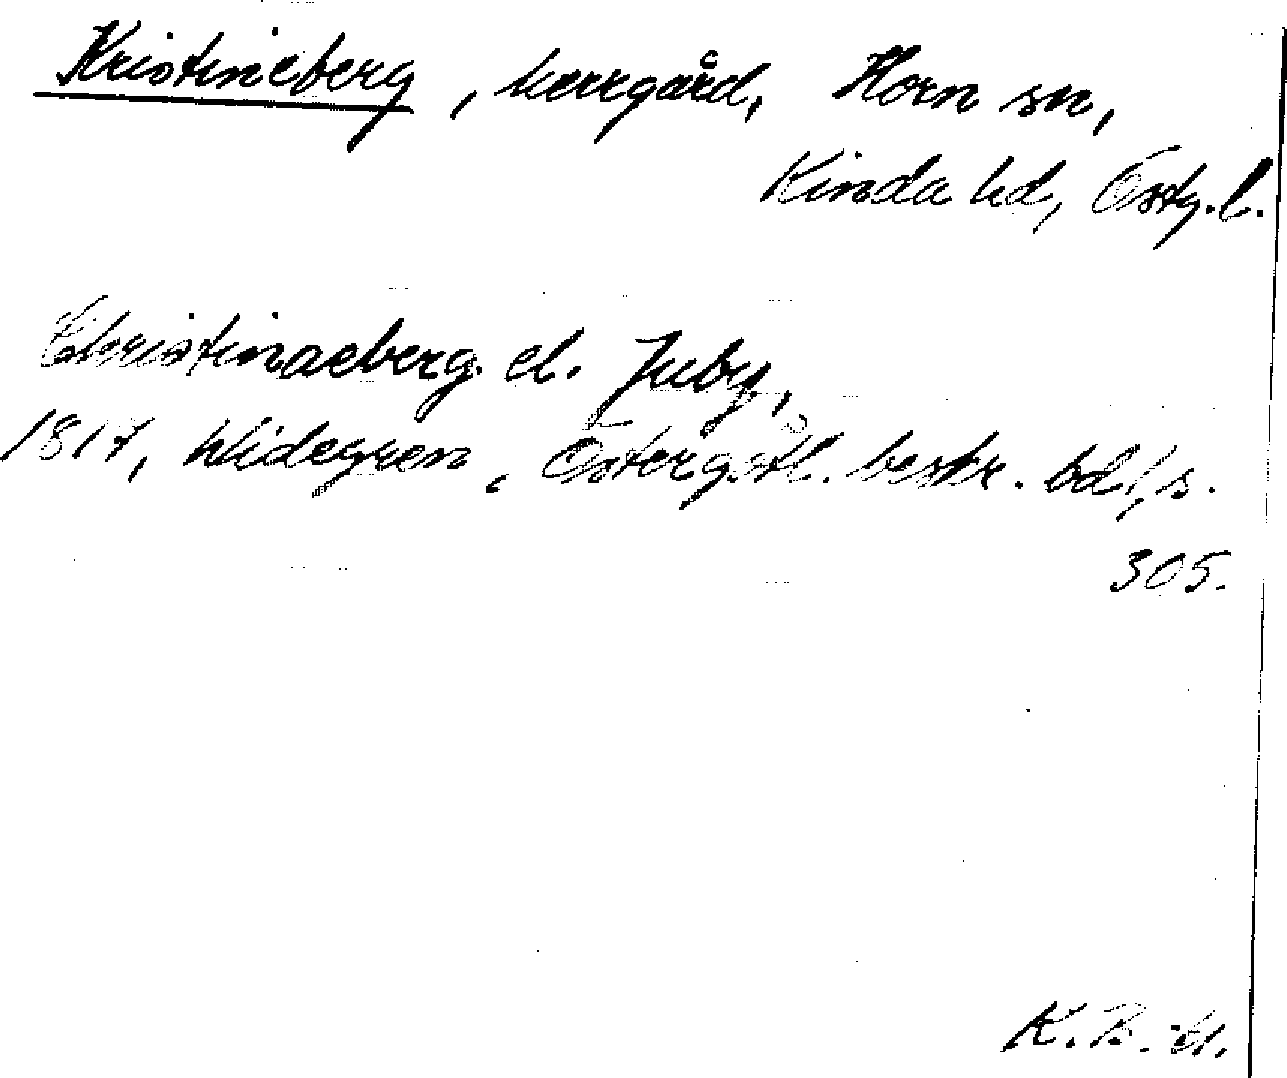 Kristineberg, herrgård, Horn sn,
Kinda hd, Östg.l.
Christinaeberg el. Juby,
1817, Widegren, Östergötl. beskr. bd 1, s.
305.
K. B.